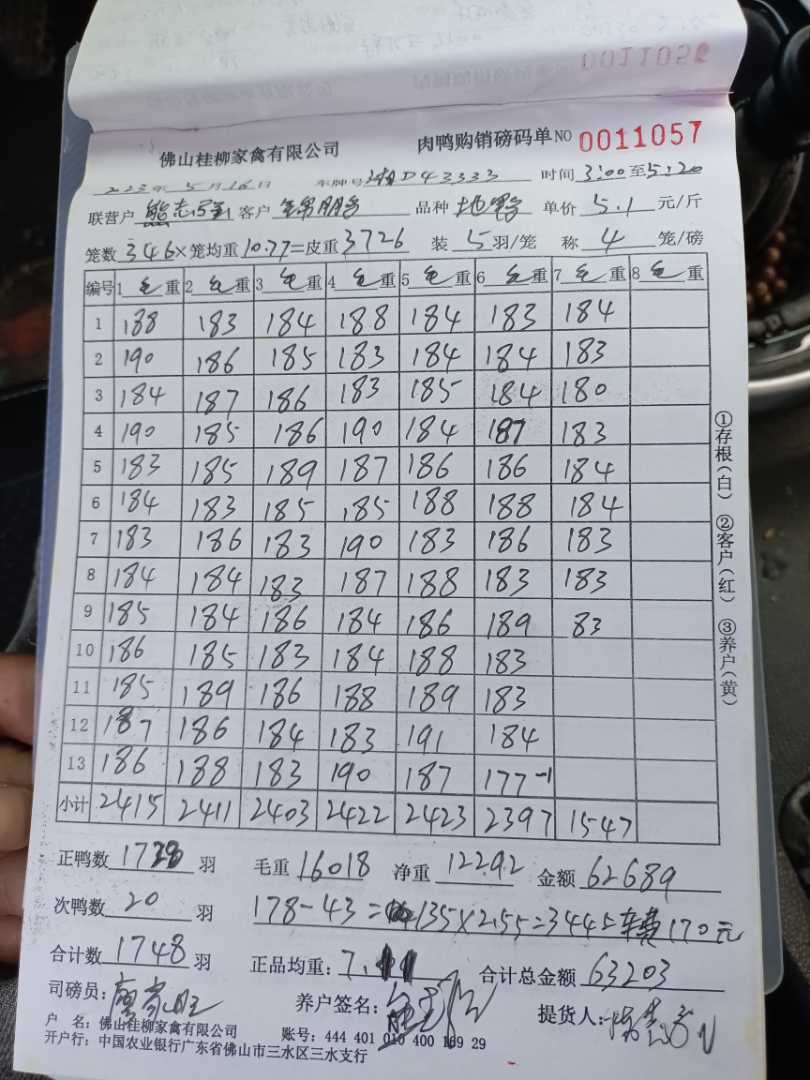 佛山桂柳家禽有限公司
肉鸭购销磅码单NO 0011057
年5月16日 车牌号 D43333 时间3:00至5:20
联营户 熊志 客户 品种 单价5.1元/斤
笼数346×笼均重10.77=皮重3726 装5羽/笼 称4笼/磅
编号 1毛重 2毛重 3毛重 4毛重 5毛重 6毛重 7毛重 8毛重
1 188 183 184 188 184 183 184
2 190 186 185 183 184 184 183
3 184 187 186 183 185 184 180
4 190 185 186 190 184 187 183
5 183 185 189 187 186 186 184
6 184 183 185 185 188 188 184
7 183 186 183 190 183 186 183
8 184 184 183 187 188 183 183
9 185 184 186 184 186 189 83
10 186 185 183 184 188 183
11 185 189 186 188 189 183
12 187 186 184 183 191 184
13 186 188 183 190 187 177-1
小计 2415 2411 2403 2422 2423 2397 1547
正鸭数1728羽 毛重16018 净重12292 金额62689
次鸭数20羽 178-43=135×2.55=344 车费170元
合计数1748羽 正品均重:7. 合计总金额63203
司磅员: 养户签名: 提货人:
户 名:佛山桂柳家禽有限公司 账号:444 401 010 400 169 29
开户行:中国农业银行广东省佛山市三水区三水支行
①存根(白) ②客户(红) ③养户(黄)